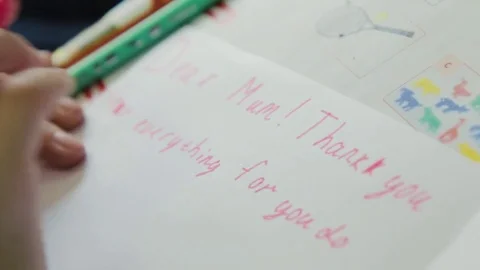 Dear Mum! Thank you
everything for you do
C